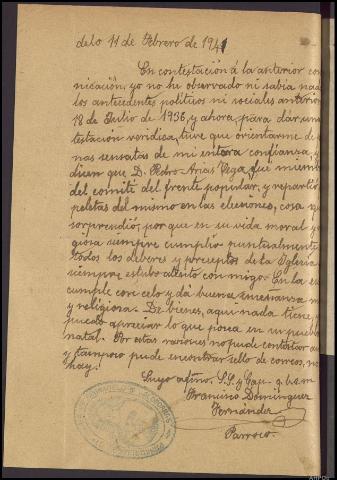 delo 11 de Febrero de 1941
En contestación á la anterior co
nicación, yo no hé observado ni sabía nad
los antecedentes políticos ni sociales anterior
18 de Julio de 1936, y ahora, para dár una
testación verídica, tuve que orientarme de
nas sensatas de mi entera confianza, y
dicen que D. Pedro Arias Vega fue miem
del comité del frente popular, y repartió
peletas del mismo en las elecciones, cosa
sorprendió, por que en su vida moral y
giosa siempre cumplió puntualmente
todos los deberes y preceptos de la Iglesia
siempre estubo atento con migo. En la es
cumple con celo y dá buena enseñanza m
y religiosa. De bienes, aquí nada tiene, y
puedo apreciar lo que posea en su pueb
natal. Por estas razones no pude contestar an
y tampoco pude encontrar sello de correos, no
hay.
Suyo afmo. S.S. y Cap. q. b. s. m
Francisco Domínguez
Fernández
Párroco.